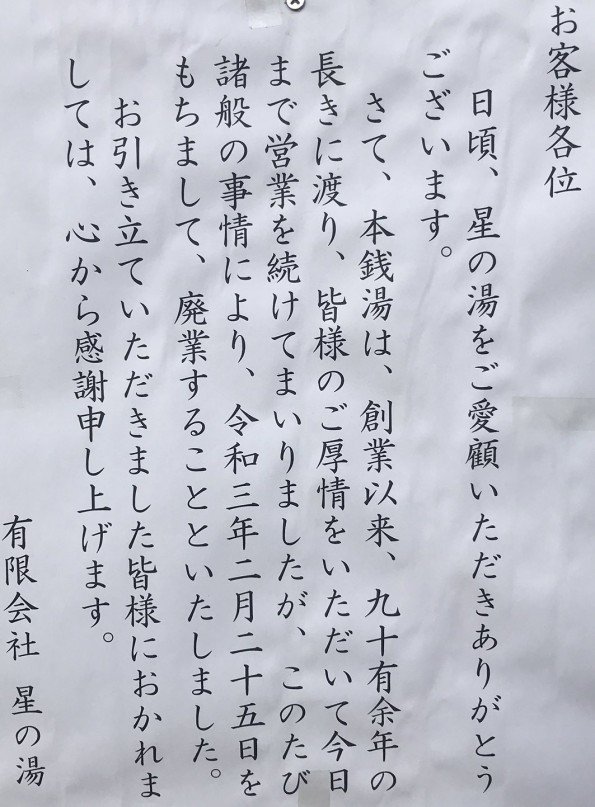 お客様各位
日頃、星の湯をご愛顧いただきありがとう
ございます。
さて、本銭湯は、創業以来、九十有余年の
長きに渡り、皆様のご厚情をいただいて今日
まで営業を続けてまいりましたが、このたび
諸般の事情により、令和三年二月二十五日を
もちまして、廃業することといたしました。
お引き立ていただきました皆様におかれま
しては、心から感謝申し上げます。
有限会社 星の湯